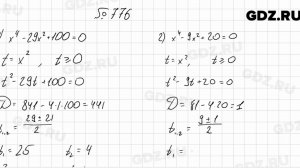 GDZ.RU
№ 776
1) x⁴-29x²+100=0
t=x², t≥0
t²-29t+100=0
D=841-4·1·100=441
29±21
2
t₁=25 t₂=4
2) x⁴-9x²+20=0
t=x², t≥0
t²-9t+20=0
D=81-4·20=1
t₁,₂= 9±1
2
t₁=
GDZ.RU